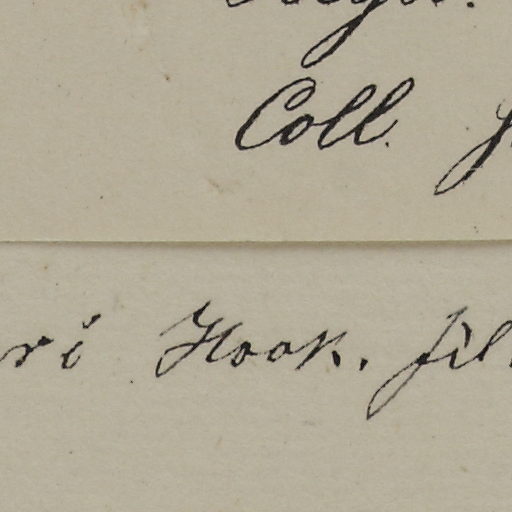 Coll.
ri Hook. fil